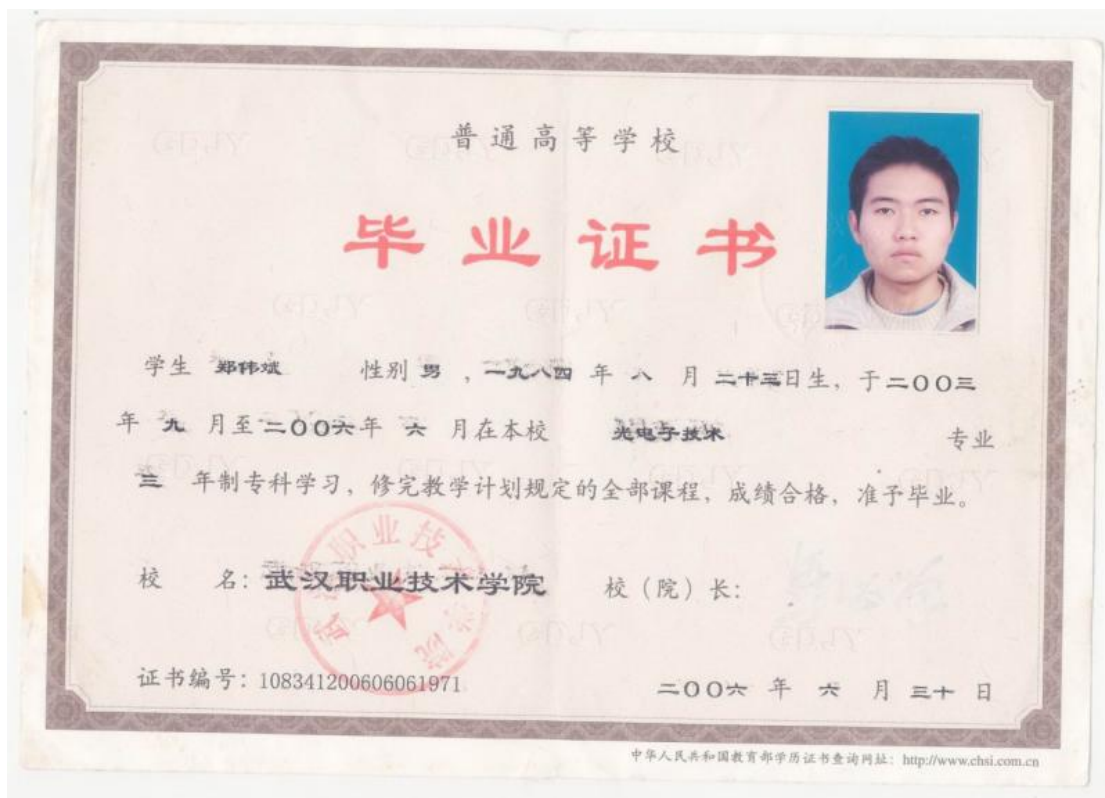 普通高等学校
毕业证书
学生 郑伟斌 性别 男 ，一九八四 年 八 月 二十三日生，于二00三
年 九 月至二00六年 六 月在本校 光电子技术 专业
三 年制专科学习，修完教学计划规定的全部课程，成绩合格，准予毕业。
校 名：武汉职业技术学院 校（院）长：
证书编号：108341200606061971 二00六 年 六 月 三十 日
中华人民共和国教育部学历证书查询网址：http://www.chsi.com.cn